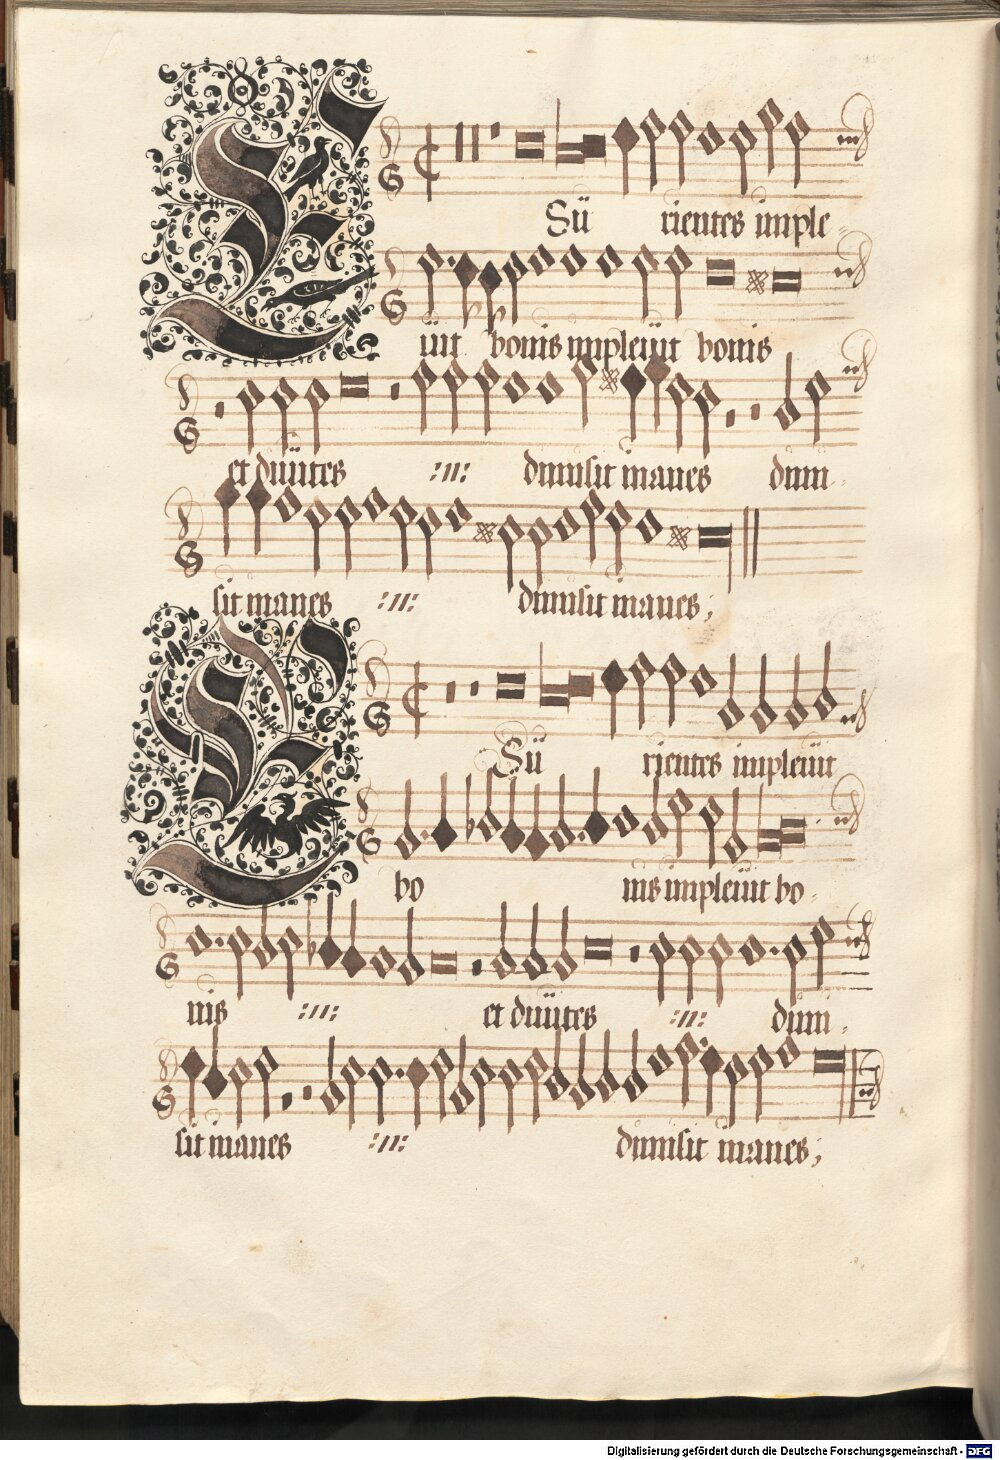 E Sü rientes imple-
üit bonis impleüit bonis
et diuites :||: dimisit inanes dimi-
sit inanes :||: dimisit inanes;
E Sü rientes impleüit
bo nis impleüit bo-
nis :||: et diuites :||: dimi-
sit inanes :||: dimisit inanes;
Digitalisierung gefördert durch die Deutsche Forschungsgemeinschaft - DFG